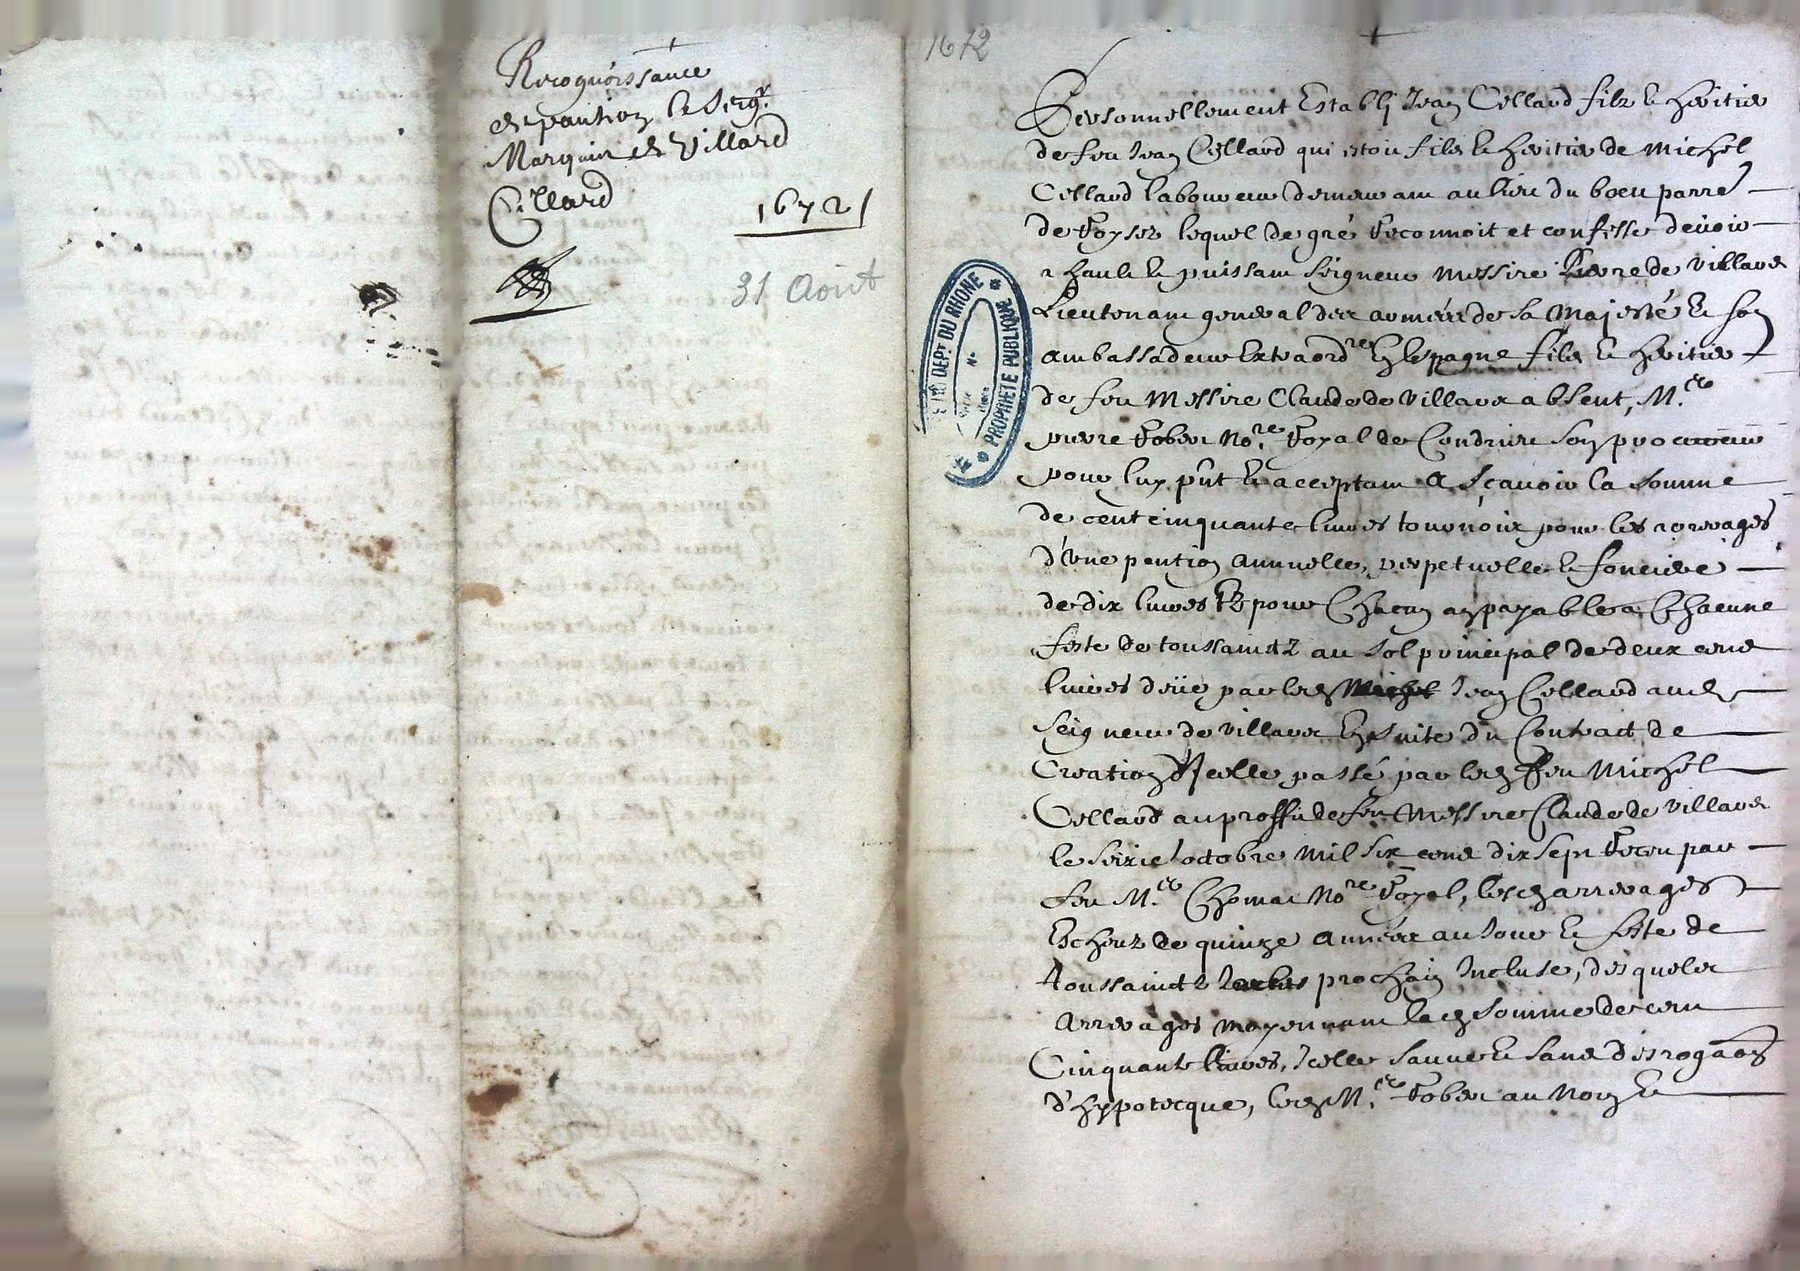 Recognoissance
de pantion le Seigr.
Marquis de Villard
Cellard
1672
31 Août
1672
DEPT DU RHONE
PROPRIETE PUBLIQUE
Personnellement Establj Jean Cellard filz & heritier
de feu Jean Cellard qui estoit filz & heritier de Michel
Cellard laboureur demeurant au lieu du boeu parre
de lequel de gré Reconnoit et confesse devoir
a hault & puissant Seigneur Messire Pierre de Villars
Lieutenant general des armées de sa Majesté & son
ambassadeur Extraordre En Espagne filz & heritier
de feu Messire Claude de Villars absent, Me.
pierre Robert Nore. Royal de Condrieu son procureur
pour luy pnt & acceptant A Sçavoir la somme
de cent cinquante livres tournois pour les arrerages
d'une pention Annuelle, perpetuelle & fonciere
de dix livres tz pour Chacun an payable a Chacune
feste de toussaintz au sol principal de deux cens
livres deüe par led Jean Cellard aud
Seigneur de Villars Ensuite du Contract de
Creation d'Icelle passé par led feu Michel
Cellard au proffit de feu Messire Claude de Villars
le octobre Mil six cens dix sept Receu par
feu Me. Thomas Nore Royal, lesd arrerages
Escheuz de quinze Années au Jour & feste de
toussaintz prochain Incluse, desquelz
Arrerages moyennant lad somme de cent
Cinquante livres, Icelle sauve & sans desrogaon
d'hypotecque, led Me. Robert au Nom &